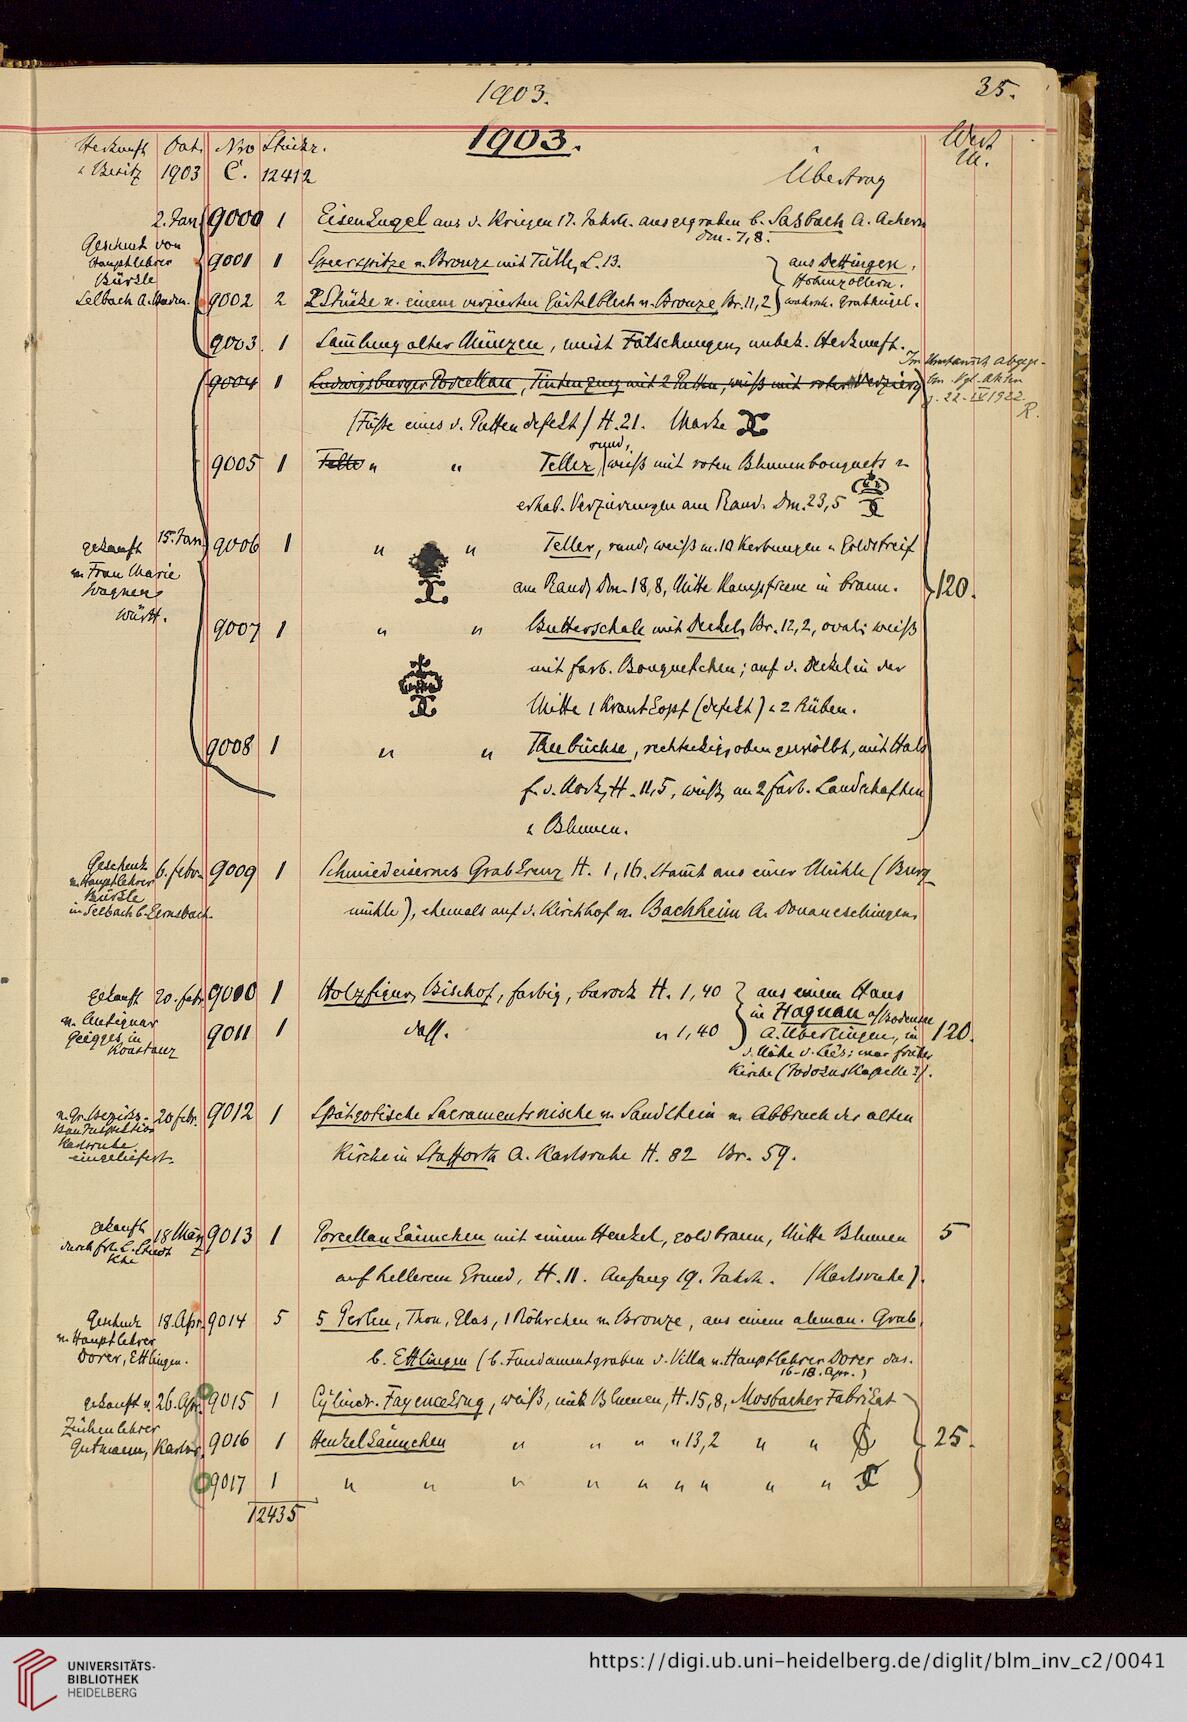 1903.
35.
Herkunft Dat. Nro Stückz. 1903. Wert
u. Besitz 1903 C. 12412 Übertrag M.
2. Jan. 9000 1 Eisenkugel aus d. Kriegen 17. Jahrh. ausgegraben b. Sasbach A. Achern
Dm. 7,8.
Geschenk von
Hauptlehrer 9001 1 Speerspitze v. Bronze mit Tülle, L. 13. aus Dettingen,
Bürkle Hohenzollern.
Selbach A. Baden. 9002 2 2 Stücke v. einem verzierten Gürtelblech v. Bronze Br. 11,2 wahrsch. Grabhügel.
9003. 1 Sammlung alter Münzen, meist Fälschungen, unbek. Herkunft.
Im Umtausch abgege-
9004 1 Ludwigsburger Porcellan, Tintenzeug mit 2 Putten, weiß mit roter Verzierg
ben. Vgl. Akten
v. 22. IV 1922.
R.
(Füße eines d. Putten defekt) H. 21. Marke
rund,
9005 1 " " Teller, weiß mit roten Blumenbouquets u.
erhab. Verzierungen am Rand. Dm. 23,5
gekauft 15. Jan. 9006 1 " " Teller, rund, weiß m. 10 Kerbungen u. Goldstreif
v. Frau Marie
Wagner,
Württ.
am Rand, Dm. 18,8, Mitte Kampfscene in braun. 120.
9007 1 " " Butterschale mit Deckel, Br. 12,2, oval; weiß
mit farb. Bouquetchen; auf d. Deckel in der
Mitte 1 Krautkopf (defekt) u. 2 Rüben.
9008 1 " " Theebüchse, rechteckig, oben gewölbt, mit Hals
f. d. Kork, H. 11,5, weiß, m 2 farb. Landschaften
u. Blumen.
Geschenk 6. Febr. 9009 1 Schmiedeisernes Grabkreuz H. 1,16. stammt aus einer Mühle (Burg-
v. Hauptlehrer
Bürkle
in Selbach b. Gernsbach.
mühle), ehemals auf d. Kirchhof v. Bachheim A. Donaueschingen.
gekauft 20. Febr. 9010 1 Holzfigur, Bischof, farbig, barock H. 1,40 aus einem Haus
v. Antiquar in Hagnau a/Bodensee
Geigges, in 9011 1 dass. " 1,40 A. Überlingen, in 120.
Konstanz d. Nähe d. Sees; war früher
Kirche (Jodokus Kapelle?).
v. Gr. Bezirks- 20 Febr. 9012 1 Spätgotische Sacramentsnische v. Sandstein v. Abbruch der alten
Bau Inspektion
Karlsruhe
eingeliefert.
Kirche in Stafforth A. Karlsruhe H. 82 Br. 59.
gekauft 18 März 9013 1 Porcellankännchen mit einem Henkel, goldbraun, Mitte Blumen 5
durch
Khe
auf hellerem Grund, H. 11. Anfang 19. Jahrh. (Karlsruhe).
Geschenk 18. Apr. 9014 5 5 Perlen, Thon, Glas, 1 Röhrchen v. Bronze, aus einem aleman. Grab,
v. Hauptlehrer
Dorer, Ettlingen.
b. Ettlingen (b. Fundamentgraben d. Villa v. Hauptlehrer Dorer das.
16-18. Apr.)
gekauft v. 26. Apr. 9015 1 Cylindr. Fayencekrug, weiß, mit Blumen, H. 15,8, Mosbacher Fabrikat
Zeichenlehrer
Gutmann, Karlsr. 9016 1 Henkelkännchen " " " " 13,2 " " 25.
9017 1 " " " " " " " " "
12435
UNIVERSITÄTS-
BIBLIOTHEK
HEIDELBERG
https://digi.ub.uni-heidelberg.de/diglit/blm_inv_c2/0041